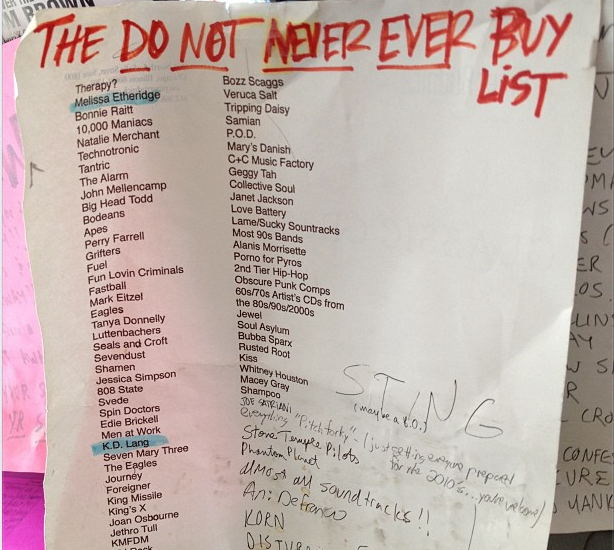 M BROWN
THE DO NOT NEVER EVER BUY
LIST
Therapy?
Melissa Etheridge
Bonnie Raitt
10,000 Maniacs
Natalie Merchant
Technotronic
Tantric
The Alarm
John Mellencamp
Big Head Todd
Bodeans
Apes
Perry Farrell
Grifters
Fuel
Fun Lovin Criminals
Fastball
Mark Eitzel
Eagles
Tanya Donnelly
Luttenbachers
Seals and Croft
Sevendust
Shamen
Jessica Simpson
808 State
Svede
Spin Doctors
Edie Brickell
Men at Work
K.D. Lang
Seven Mary Three
The Eagles
Journey
Foreigner
King Missile
King's X
Joan Osbourne
Jethro Tull
KMFDM
Bozz Scaggs
Veruca Salt
Tripping Daisy
Samian
P.O.D.
Mary's Danish
C+C Music Factory
Geggy Tah
Collective Soul
Janet Jackson
Love Battery
Lame/Sucky Sountracks
Most 90s Bands
Alanis Morrisette
Porno for Pyros
2nd Tier Hip-Hop
Obscure Punk Comps
60s/70s Artist's CDs from
the 80s/90s/2000s
Jewel
Soul Asylum
Bubba Sparx
Rusted Root
Kiss
Whitney Houston
Macey Gray
Shampoo
JOE SATRIANI
everything "Pitchforky" - (just getting everyone prepared
for the 2010's... you're welcome)
Stone Temple Pilots
Phantom Planet
Almost all soundtracks!!
Ani DeFranco
KORN
STING
(maybe a B.O.)